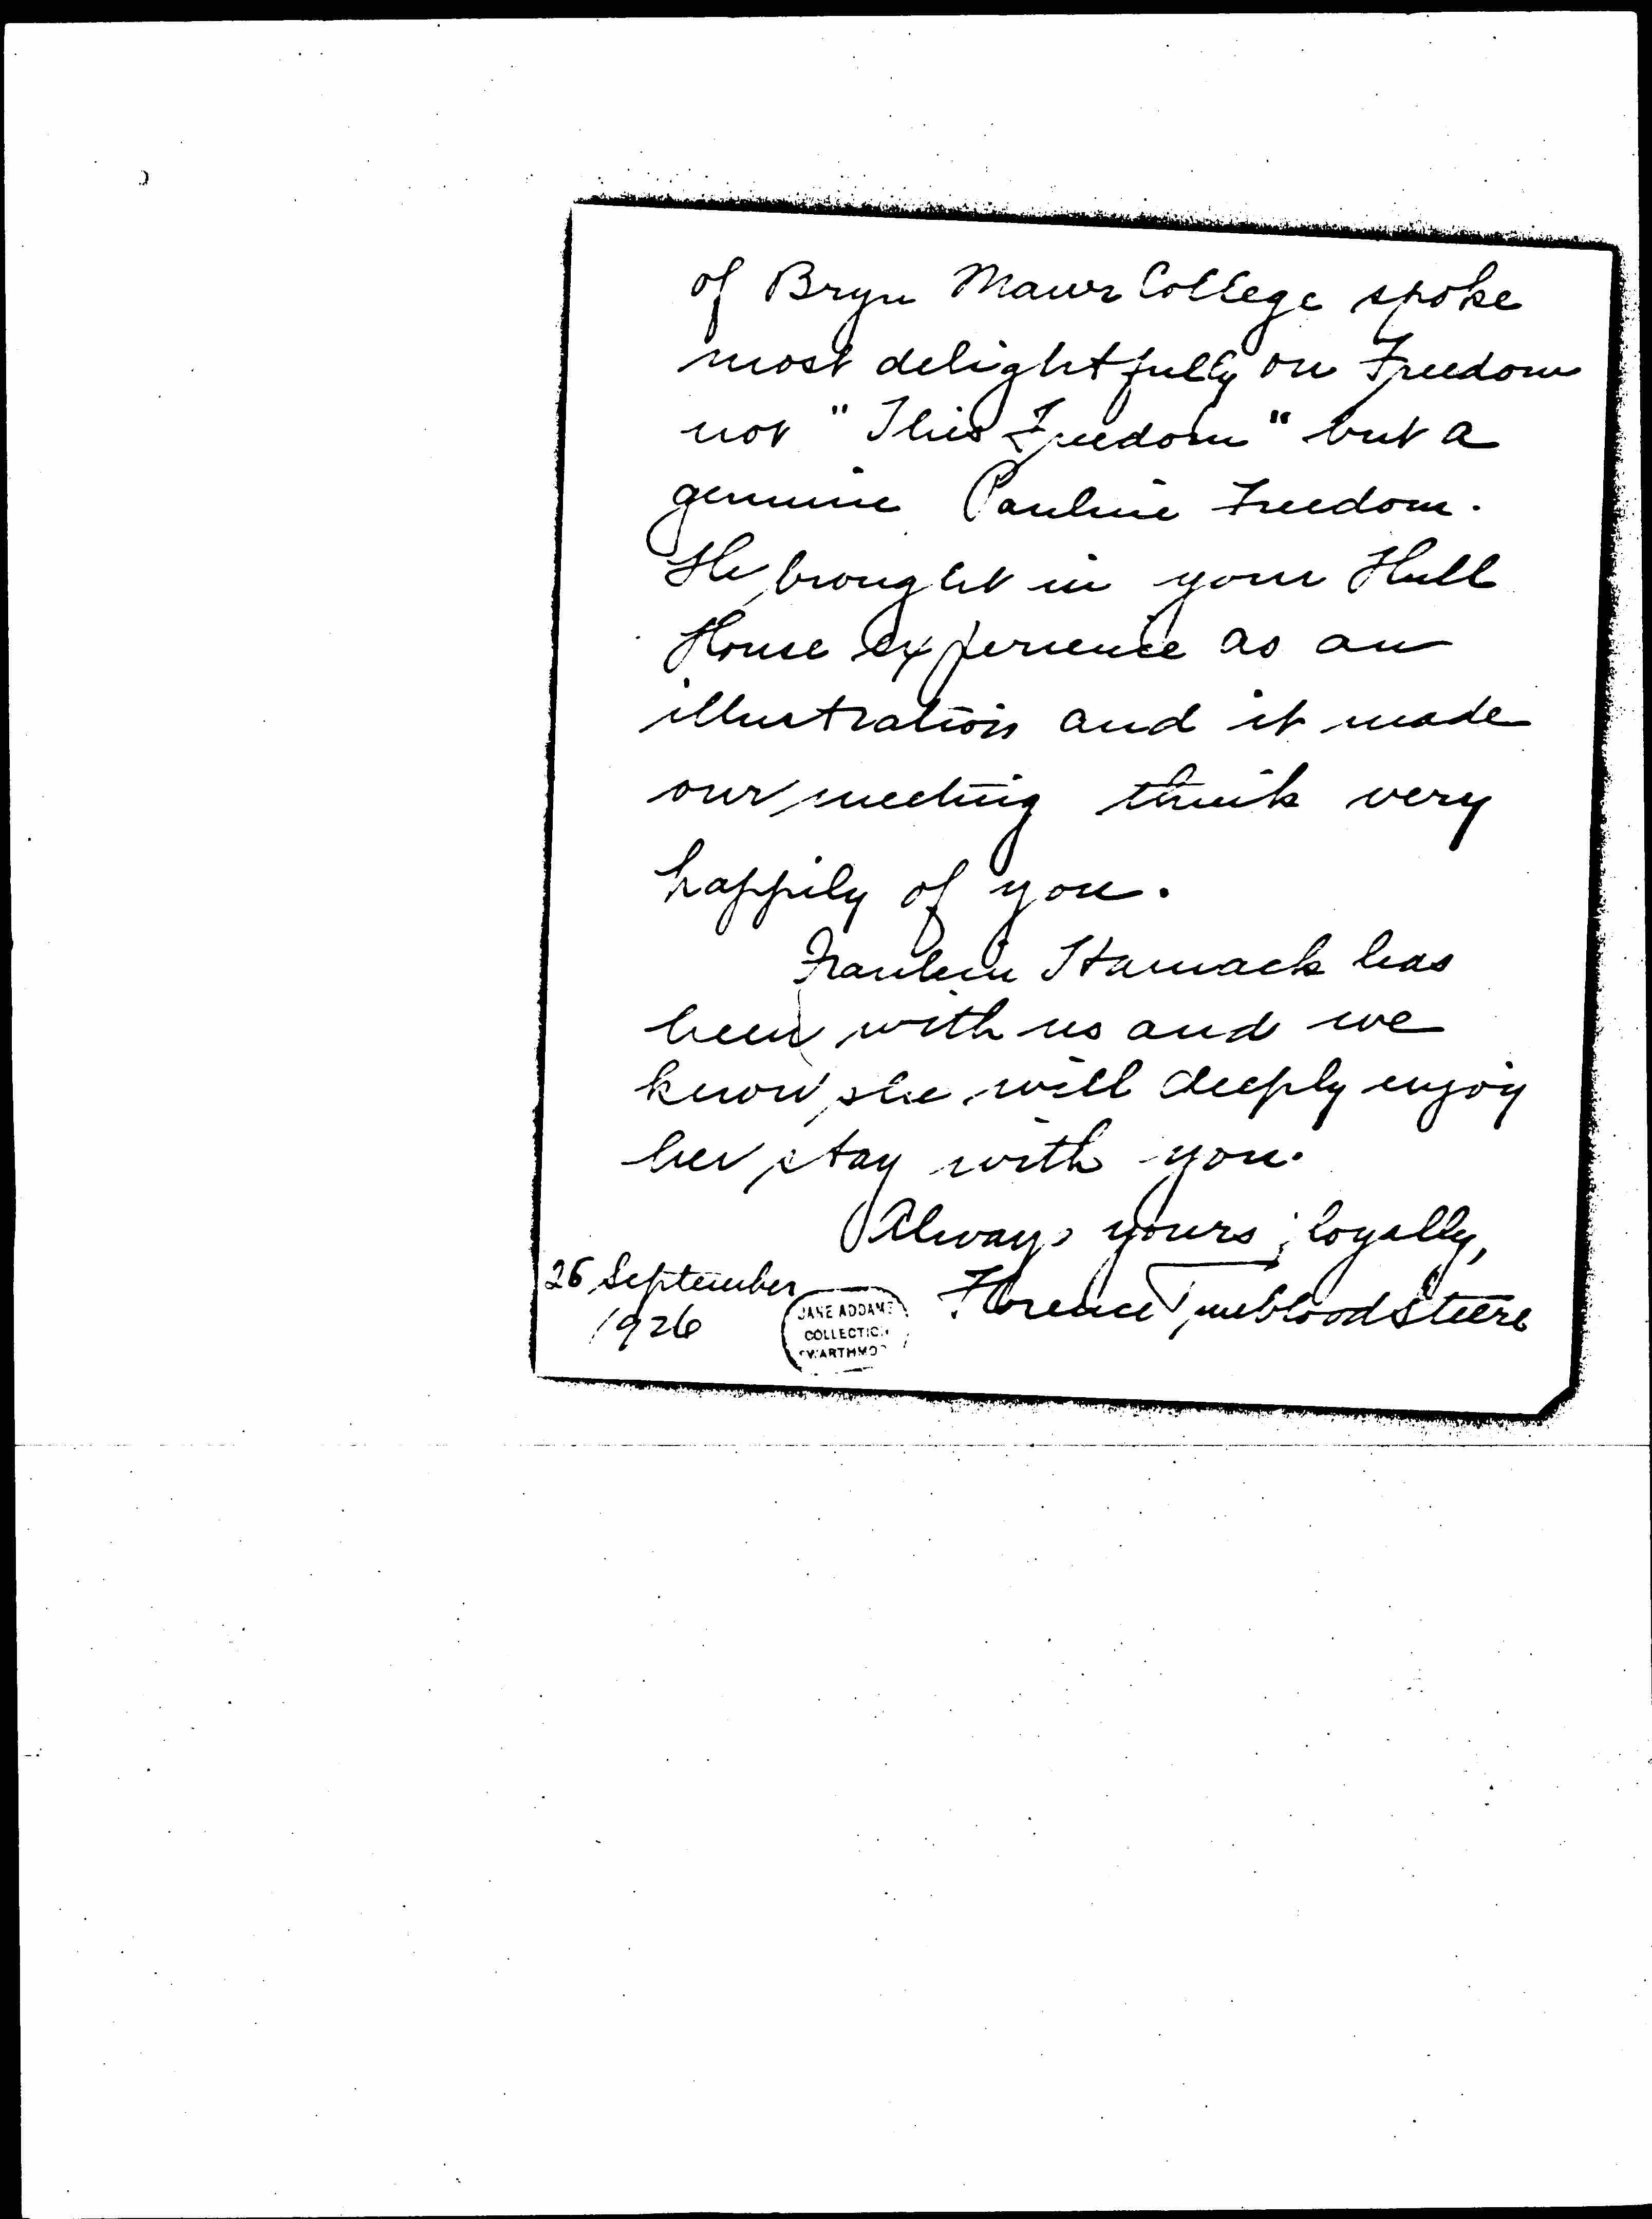 of Bryn Mawr College spoke
most delightfully on Freedom
not "This Freedom" but a
genuine Pauline Freedom.
He brought in your Hull
House experience as an
illustration and it made
our meeting think very
happily of you.
Fraulein Harnack has
been with us and we
know she will deeply enjoy
her stay with you.
Always yours, loyally,
Florence Trueblood Steere
26 September
1926
JANE ADDAMS
COLLECTION
SWARTHMORE